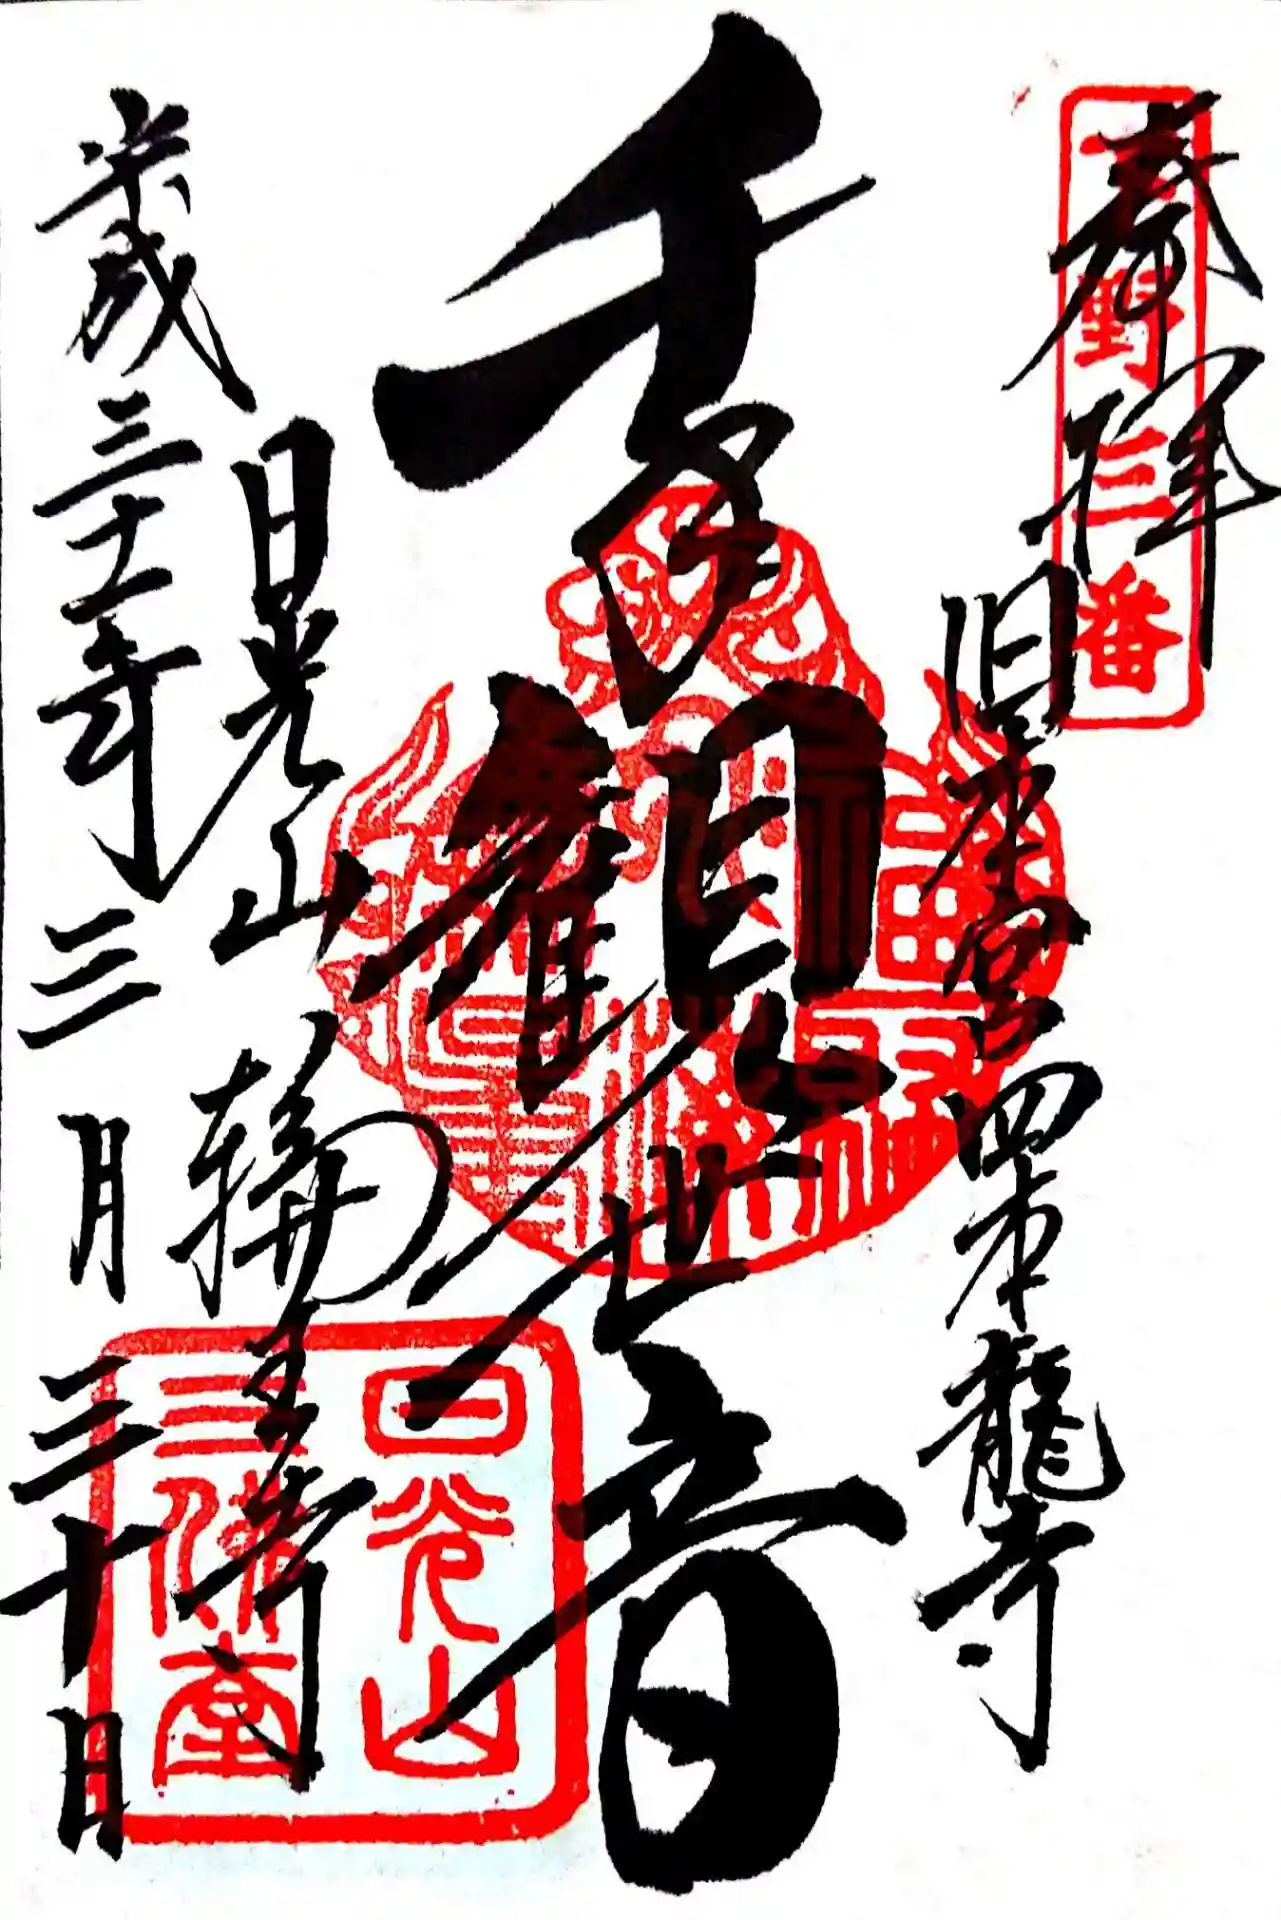 奉拝
下野三番
旧本宮四本龍寺
千手観世音
日光山
輪王寺
日光山
三佛堂
平成三十一年三月三十日